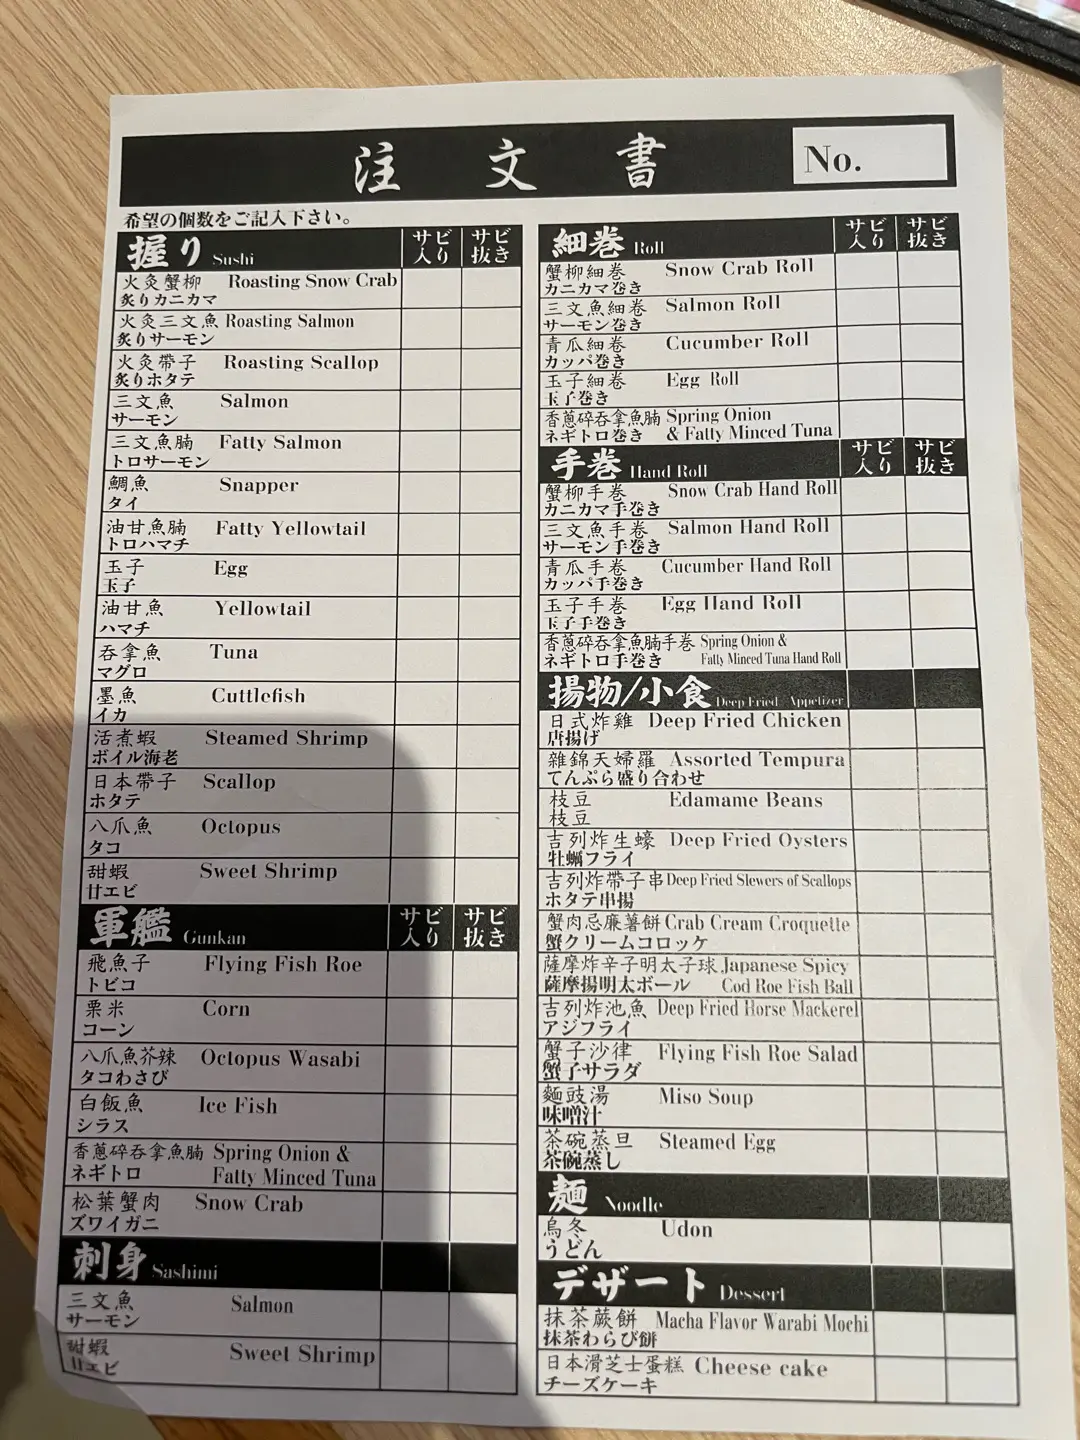 注文書
No.
希望の個数をご記入下さい。
握り Sushi サビ入り サビ抜き
火灸蟹柳 Roasting Snow Crab
炙りカニカマ
火灸三文魚 Roasting Salmon
炙りサーモン
火灸帶子 Roasting Scallop
炙りホタテ
三文魚 Salmon
サーモン
三文魚腩 Fatty Salmon
トロサーモン
鯛魚 Snapper
タイ
油甘魚腩 Fatty Yellowtail
トロハマチ
玉子 Egg
玉子
油甘魚 Yellowtail
ハマチ
吞拿魚 Tuna
マグロ
墨魚 Cuttlefish
イカ
活煮蝦 Steamed Shrimp
ボイル海老
日本帶子 Scallop
ホタテ
八爪魚 Octopus
タコ
甜蝦 Sweet Shrimp
甘エビ
軍艦 Gunkan サビ入り サビ抜き
飛魚子 Flying Fish Roe
トビコ
粟米 Corn
コーン
八爪魚芥辣 Octopus Wasabi
タコわさび
白飯魚 Ice Fish
シラス
香蔥碎吞拿魚腩 Spring Onion &
ネギトロ Fatty Minced Tuna
松葉蟹肉 Snow Crab
ズワイガニ
刺身 Sashimi
三文魚 Salmon
サーモン
甜蝦 Sweet Shrimp
甘エビ
細巻 Roll サビ入り サビ抜き
蟹柳細卷 Snow Crab Roll
カニカマ巻き
三文魚細卷 Salmon Roll
サーモン巻き
青瓜細卷 Cucumber Roll
カッパ巻き
玉子細卷 Egg Roll
玉子巻き
香蔥碎吞拿魚腩 Spring Onion
ネギトロ巻き & Fatty Minced Tuna
手巻 Hand Roll サビ入り サビ抜き
蟹柳手卷 Snow Crab Hand Roll
カニカマ手巻き
三文魚手卷 Salmon Hand Roll
サーモン手巻き
青瓜手卷 Cucumber Hand Roll
カッパ手巻き
玉子手卷 Egg Hand Roll
玉子手巻き
香蔥碎吞拿魚腩手卷 Spring Onion &
ネギトロ手巻き Fatty Minced Tuna Hand Roll
揚物/小食 Deep Fried / Appetizer
日式炸雞 Deep Fried Chicken
唐揚げ
雜錦天婦羅 Assorted Tempura
てんぷら盛り合わせ
枝豆 Edamame Beans
枝豆
吉列炸生蠔 Deep Fried Oysters
牡蠣フライ
吉列炸帶子串 Deep Fried Slewers of Scallops
ホタテ串揚
蟹肉忌廉薯餅 Crab Cream Croquette
蟹クリームコロッケ
薩摩炸辛子明太子球 Japanese Spicy
薩摩揚明太ボール Cod Roe Fish Ball
吉列炸池魚 Deep Fried Horse Mackerel
アジフライ
蟹子沙律 Flying Fish Roe Salad
蟹子サラダ
麵豉湯 Miso Soup
味噌汁
茶碗蒸旦 Steamed Egg
茶碗蒸し
麺 Noodle
烏冬 Udon
うどん
デザート Dessert
抹茶蕨餅 Macha Flavor Warabi Mochi
抹茶わらび餅
日本滑芝士蛋糕 Cheese cake
チーズケーキ